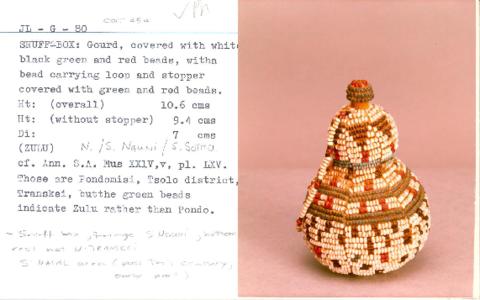 ✓PR
COT 454
JL - G - 80
SNUFF-BOX: Gourd, covered with white
black green and red beads, witha
bead carrying loop and stopper
covered with green and red beads.
Ht: (overall) 10.6 cms
Ht: (without stopper) 9.4 cms
Di: 7 cms
(ZULU) N. / S. Nguni / S. Sotho
cf. Ann. S.A. Mus XXlV,v, pl. LXV.
Those are Pondomisi, Tsolo district,
Transkei, butthe green beads
indicate Zulu rather than Pondo.
- Snuff box, S Nguni,
not N. TRANSKEI
S. NATAL area (